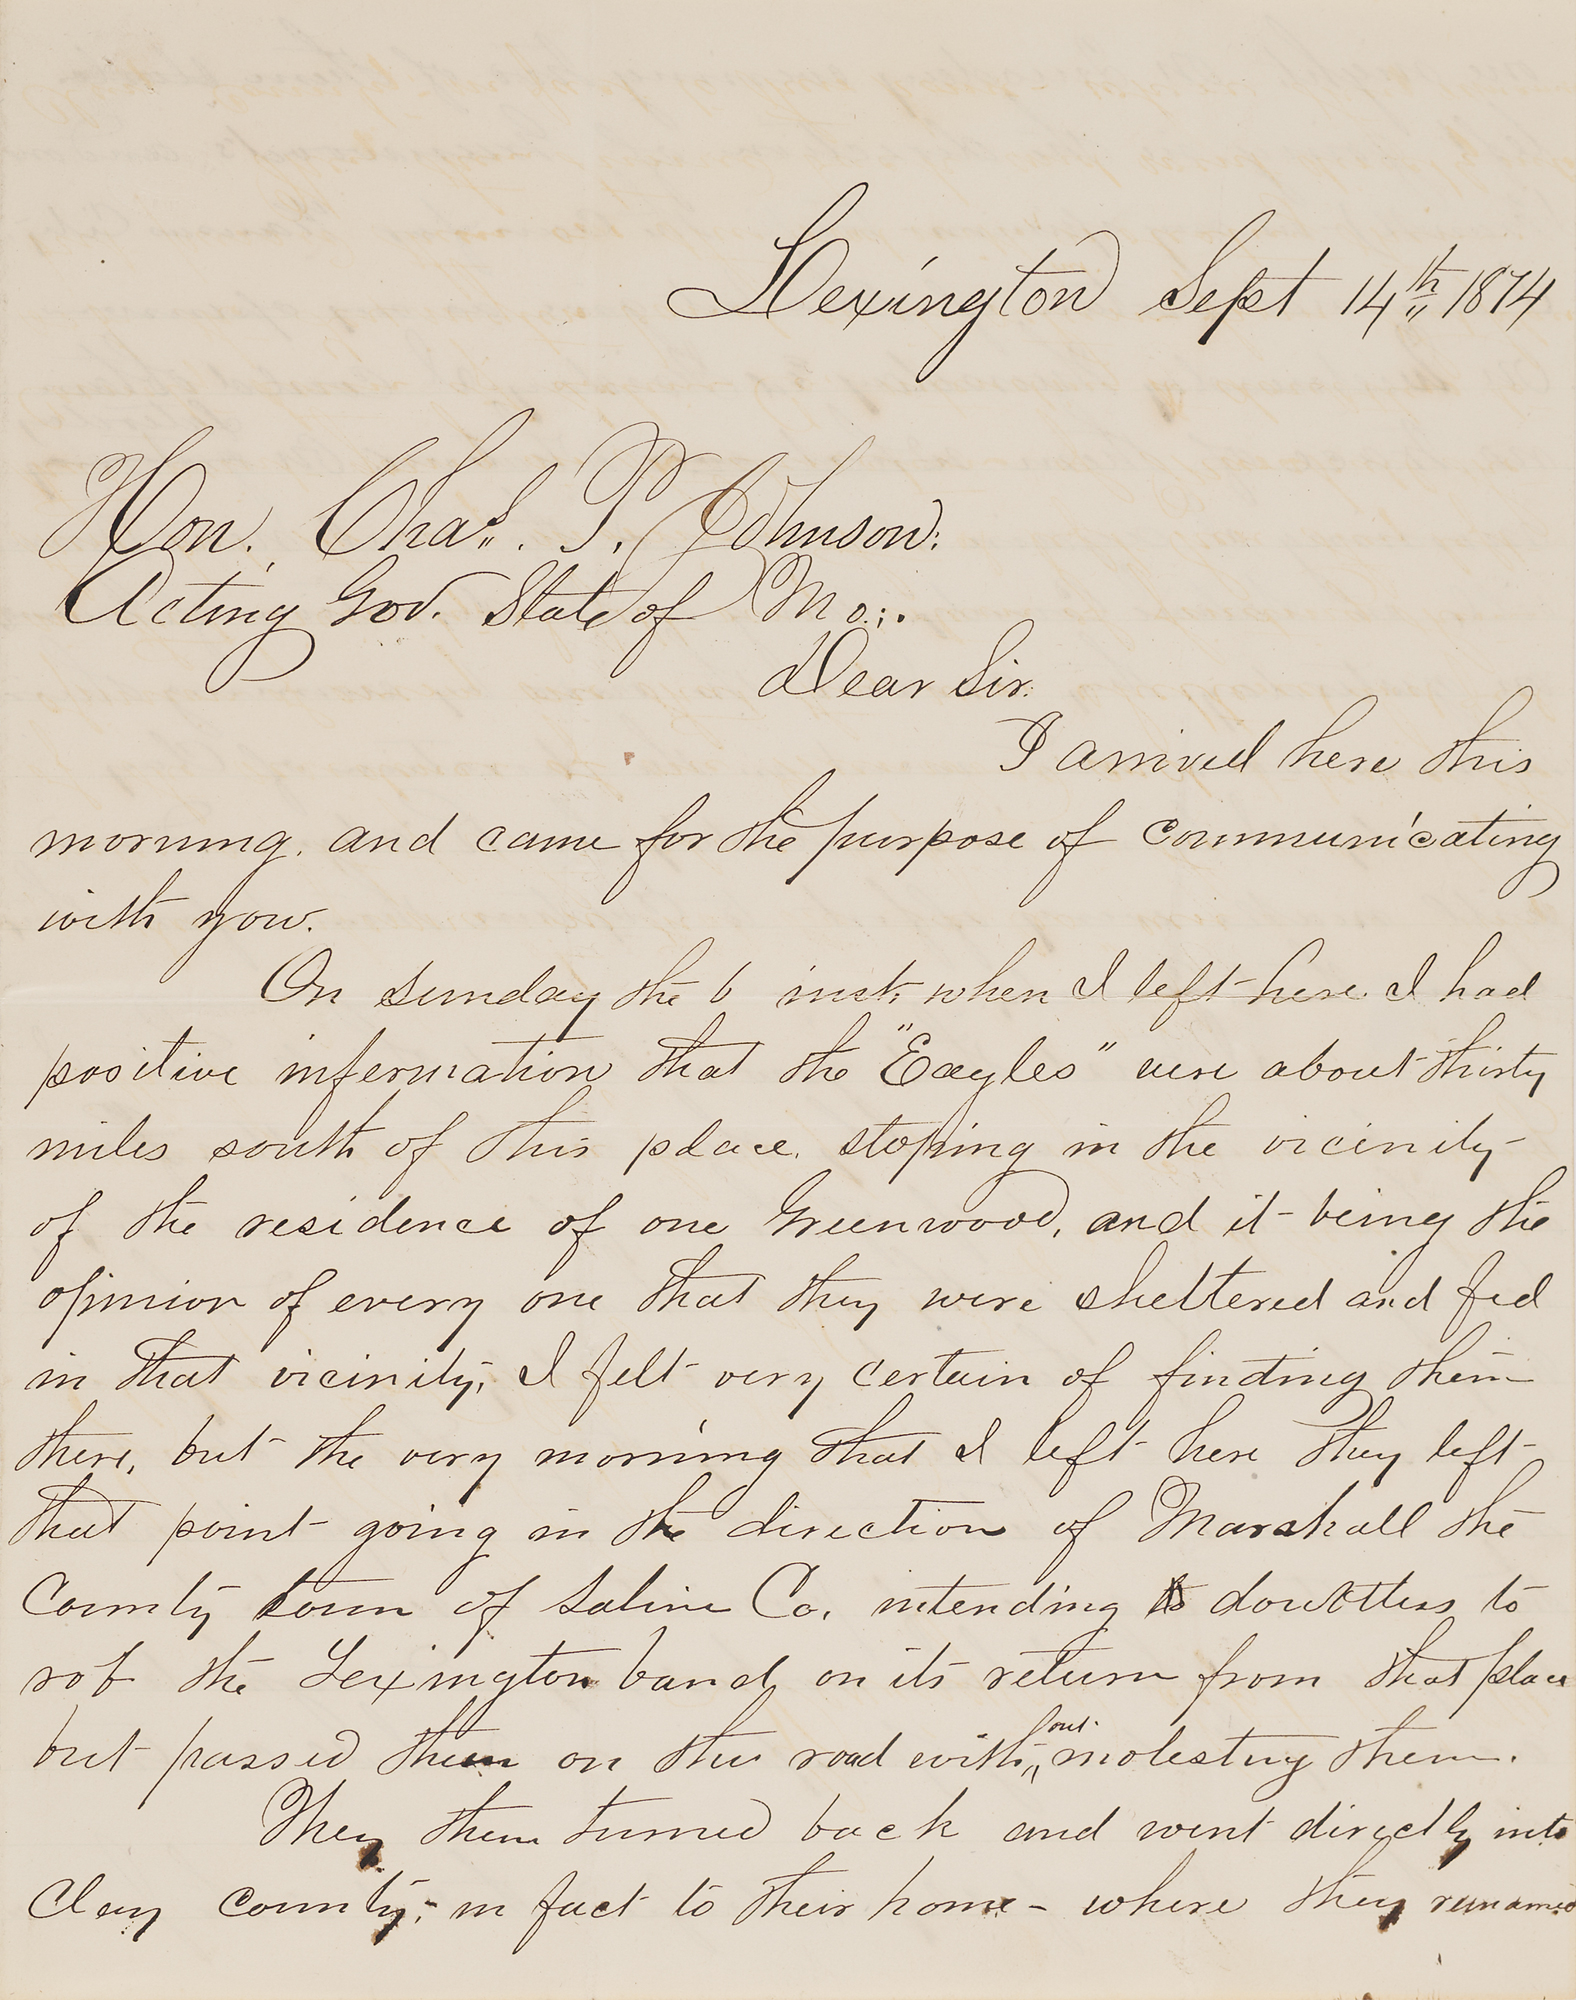 Lexington Sept 14th 1874
Hon. Chas. P. Johnson.
Acting Gov. State of Mo.;.
Dear Sir.
I arrived here this
morning. and came for the purpose of communicating
with you.
On sunday the 6 inst. when I left here I had
positive information that the "Eagles" were about thirty
miles south of this place. stoping in the vicinity
of the residence of one Greenwood, and it being the
opinion of every one that they were sheltered and fed
in that vicinity, I felt very certain of finding them
there, but the very morning that I left here they left
that point going in the direction of Marshall the
County town of Saline Co. intending doubtless to
rob the Lexington band on its return from that place
but passed them on the road without molesting them.
They then turned back and went directly into
Clay county, in fact to their home - where they remained